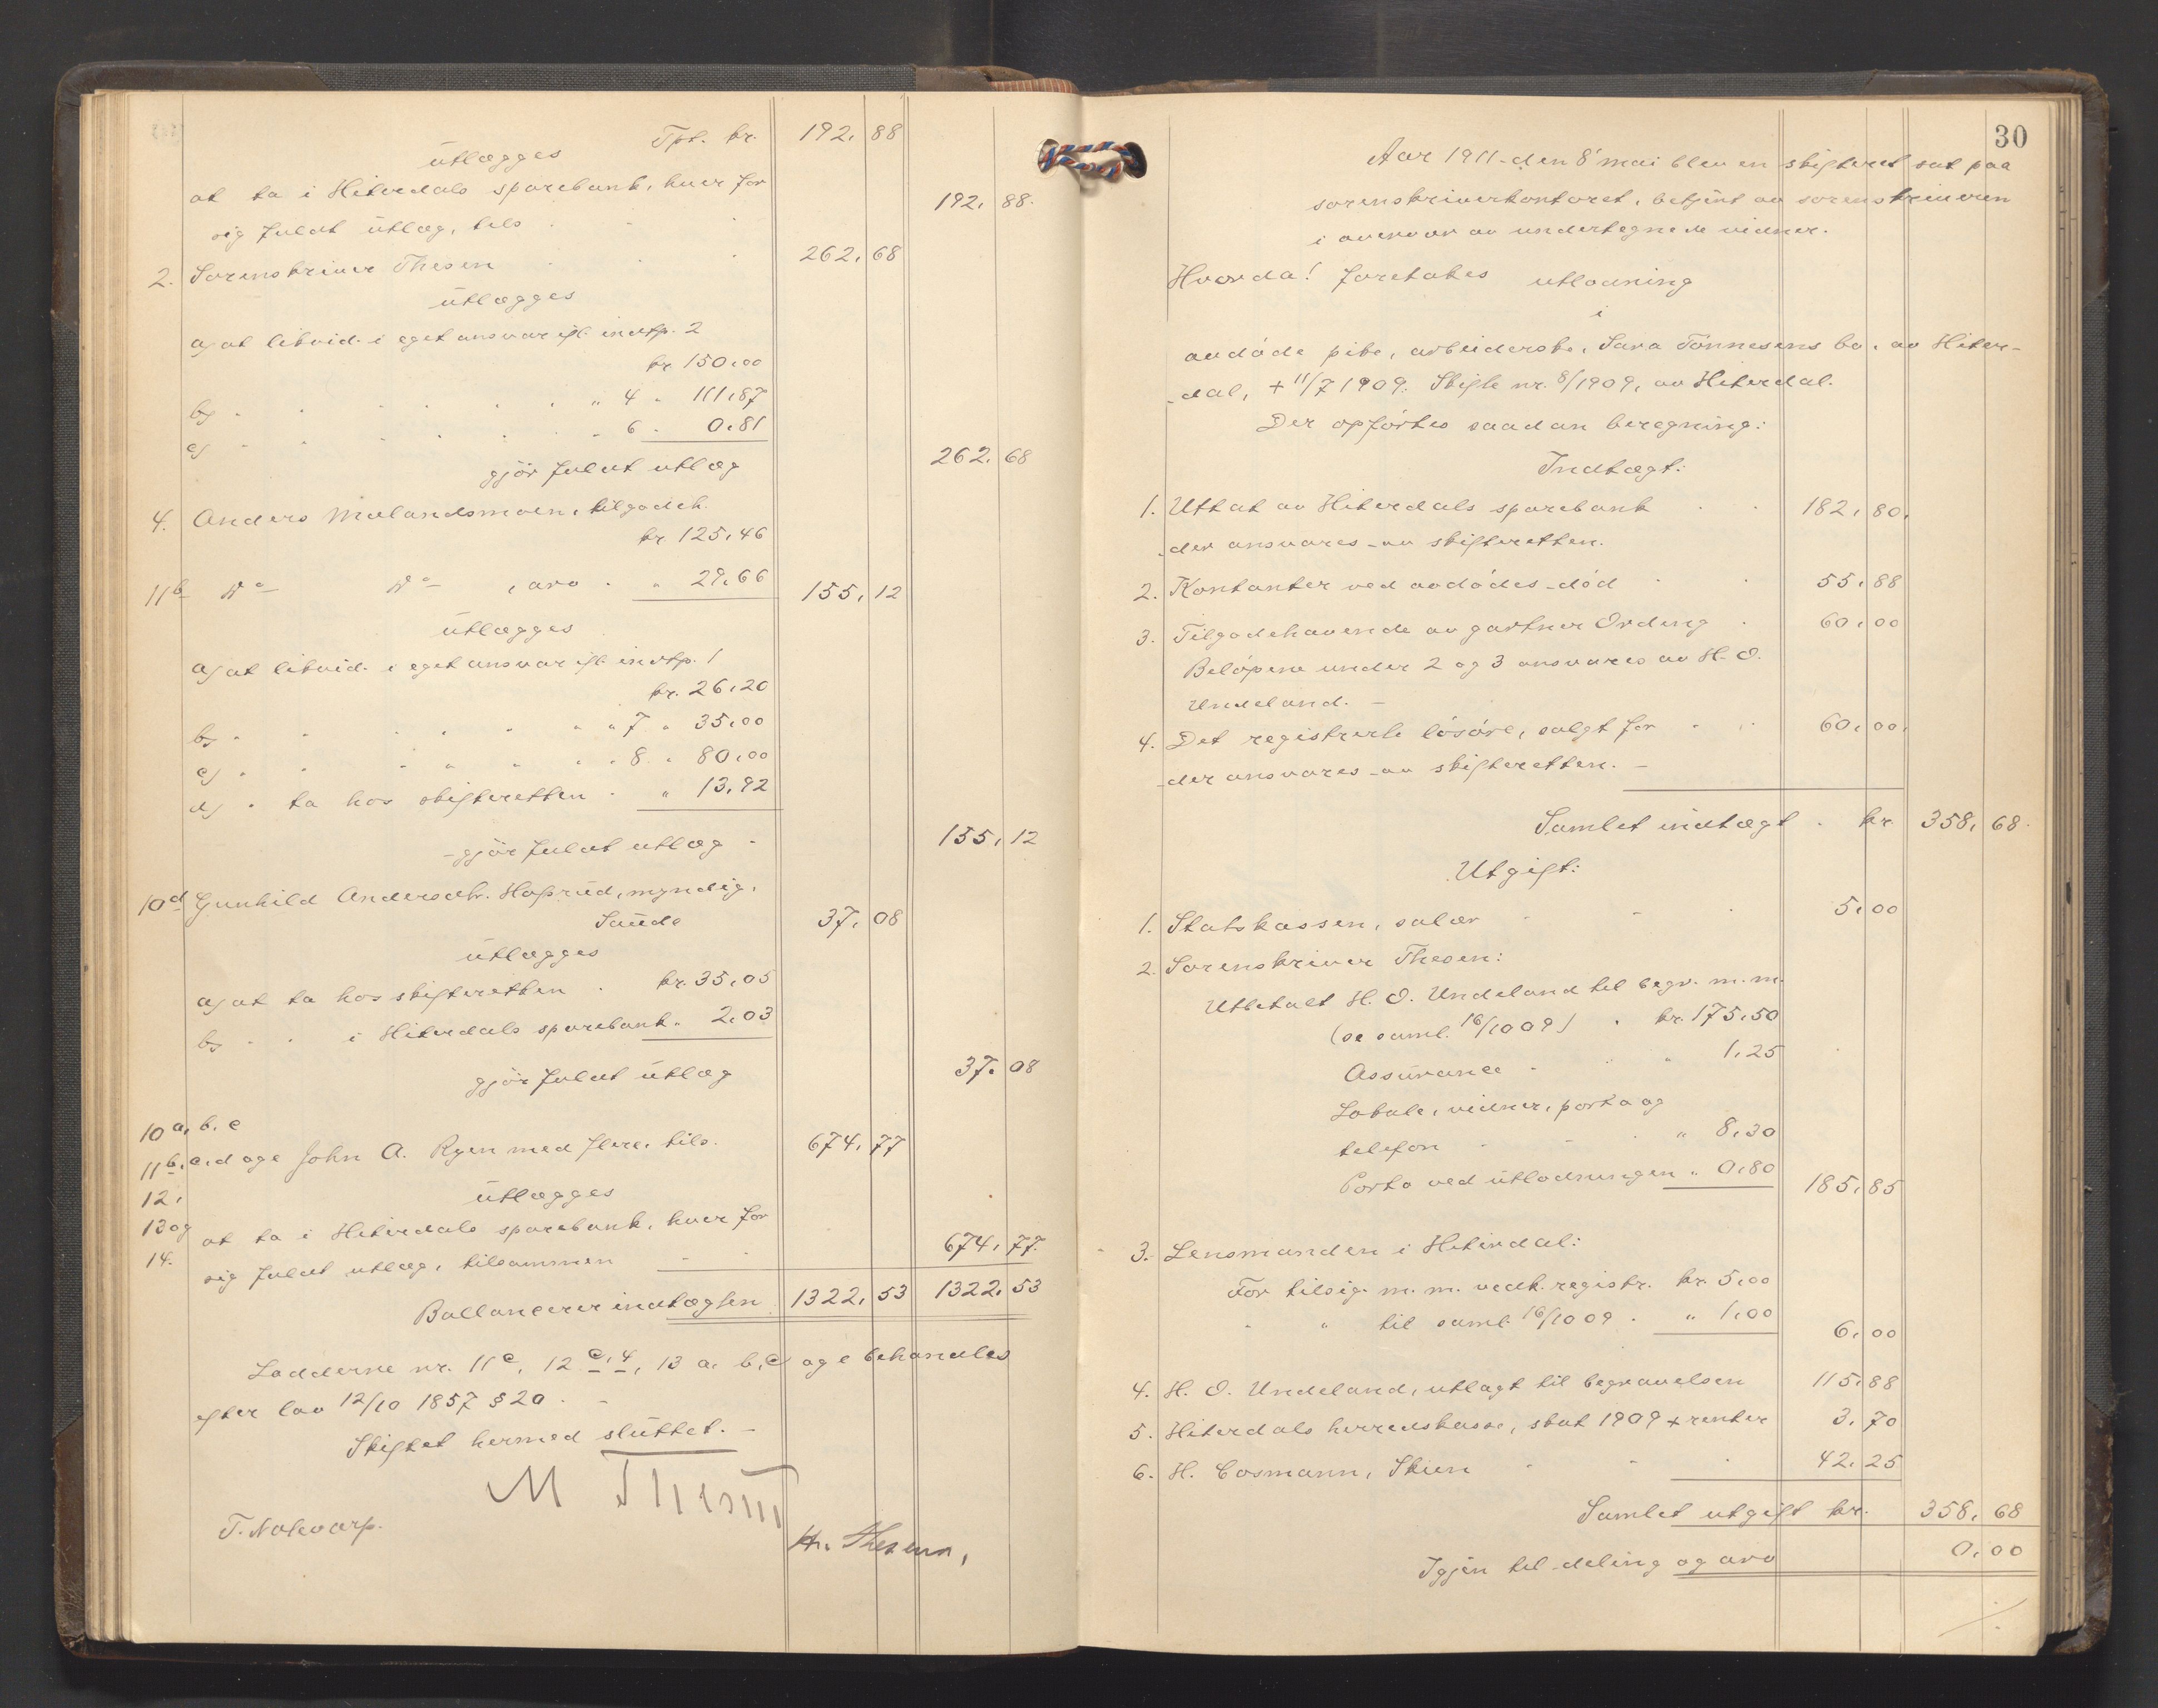 Tpt. kr. 192,88
utlægges
at ta i Hiterdals sparebank, hver for
sig fuldt utlæg, tils. 192,88.
2. Sorenskriver Thesen 262,68
utlægges
a) at likvid. i eget ansvar ifl. indtp. 2
kr. 150,00
b) " 4 " 111,87
c) " 6 " 0,81
gjør fuldt utlæg 262,68
4. Anders Mælandsmoen, tilgodeh.
kr. 125,46
11b Do Do, arv " 29,66 155,12
utlægges
a) at likvid. i eget ansvar ifl. indtp. 1
kr. 26,20
b) " 7 " 35,00
c) " 8 " 80,00
d) " ta hos skifteretten " 13,92
gjør fuldt utlæg 155,12
10d Gunhild Andersdtr. Haprud, myndig,
Saude 37,08
utlægges
a) at ta hos skifteretten kr. 35,05
b) " " i Hiterdals sparebank " 2,03
gjør fuldt utlæg 37,08
10 a, b, c
11b, c, d og e John A. Ryen med flere, tils. 674,77
12, utlægges
13 og at ta i Hiterdals sparebank, hver for
14. sig fuldt utlæg, tilsammen 674,77.
Ballancerer indtægten 1322,53 1322,53
Lodderne nr. 11c, 12 c, 4, 13 a, b, c og e behandles
efter lov 12/10 1857 § 20.
Skiftet hermed sluttet.
M Thesen
T. Nakvarp. Kr. Thesen,
30
Aar 1911 den 8' mai blev en skifteret sat paa
sorenskriverkontoret, betjent av sorenskriveren
i overvær av undertegnede vidner.
Hvorda! foretokes utlodning
i
avdøde pike, arbeiderske, Sara Tønnesens bo, av Hiter-
dal, + 11/7 1909. Skifte nr. 8/1909, av Hiterdal.
Der opførtes saadan beregning:
Indtægt:
1. Uttat av Hiterdals sparebank 182,80,
der ansvares av skifteretten.
2. Kontanter ved avdødes død 55,88
3. Tilgodehavende av gartner Ording 60,00
Beløpene under 2 og 3 ansvares av H. O.
Undeland.
4. Det registrerte løsøre, solgt for 60,00,
der ansvares av skifteretten.
Samlet indtægt kr. 358,68.
Utgift:
1. Statskassen, salær 5,00
2. Sorenskriver Thesen:
Utbetalt H. O. Undeland til begr. m. m.
(se saml. 16/10 09) kr. 175,50
Assurance " 1,25
Lokale, vidner, porto og
telefon " 8,30
Porto ved utlodningen " 0,80 185,85
3. Lensmanden i Hiterdal:
For tilsig. m. m. vedk. registr. kr. 5,00
" " til saml. 16/10 09 " 1,00 6,00
4. H. O. Undeland, utlagt til begravelsen 115,88
5. Hiterdals herredskasse, skat 1909 + renter 3,70
6. H. Cosmann, Skien 42,25
Samlet utgift kr. 358,68
Igjen til deling og arv 0,00